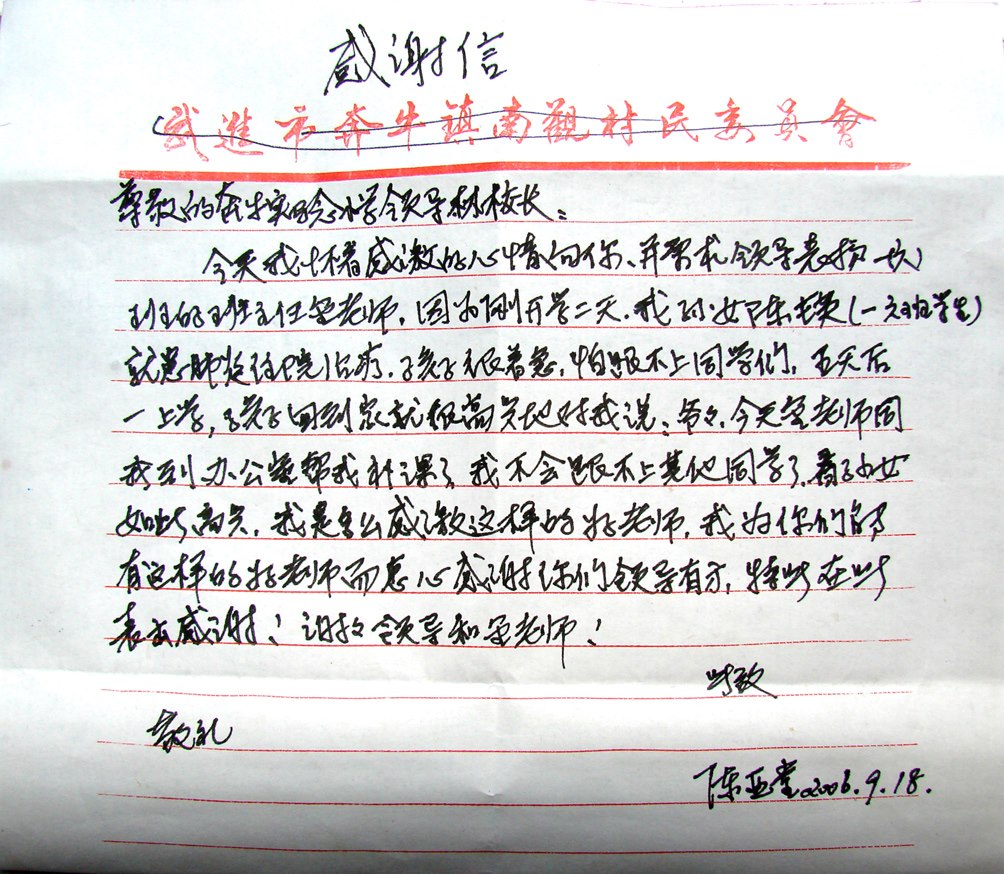 感谢信
武進市奔牛镇南觀村民委員會
尊敬的奔牛实验小学领导林校长：
今天我怀着感激的心情向你、并帮我领导表扬一次
班的班主任金老师，因为刚开学二天，我孙女陈（一班学生）
就患肺炎住院治疗，孩子很着急，怕跟不上同学们，五天后
一上学，孩子回到家就很高兴地对我说：爷爷，今天金老师同
我到办公室帮我补课了，我不会跟不上其他同学了，看子女
如此高兴，我是多么感激这样的好老师，我为你们能
有这样的好老师而衷心感谢你们领导有方，特此在此
表示感谢！谢谢领导和金老师！
此致
敬礼
陈亚堂2006.9.18.